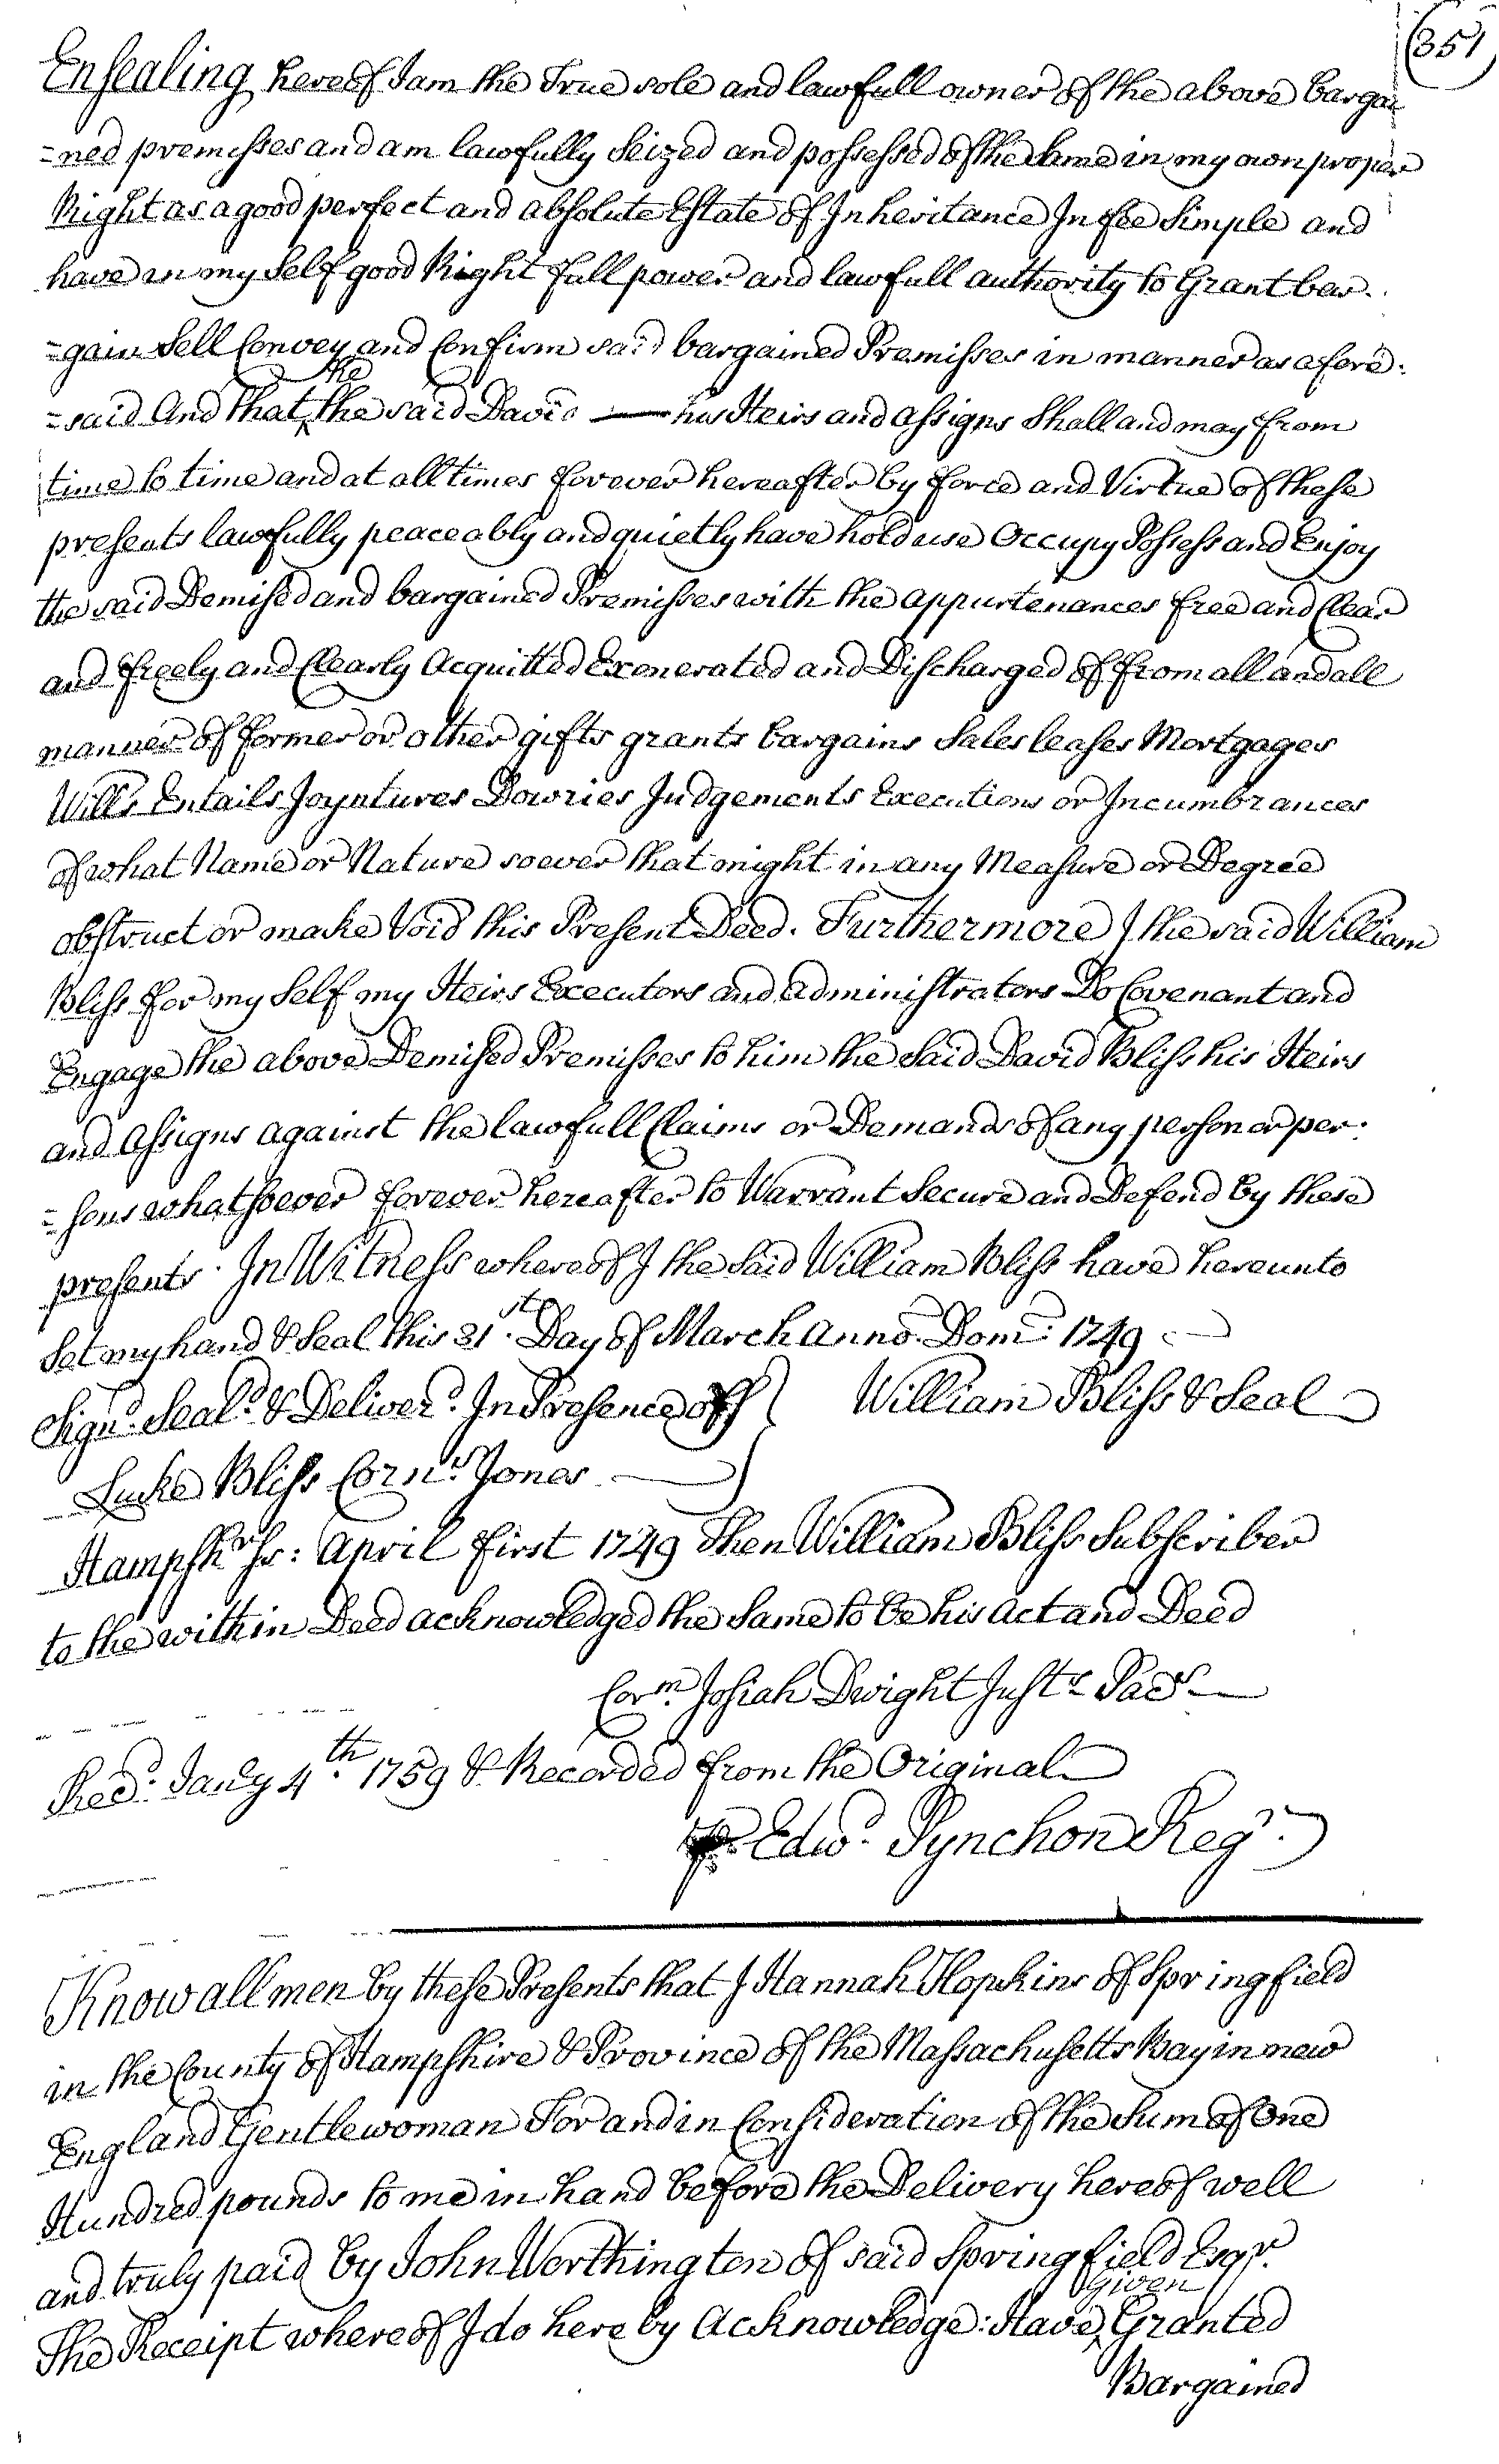 351
Ensealing hereof I am the True sole and lawfull owner of the above bargai
=ned premisses and am lawfully Seized and possessed of the same in my own proper
Right as a good perfect and absolute Estate of Inheritance In fee Simple and
have in my Self good Right full power and lawfull authority to Grant bar-
=gain Sell Convey and Confirm said bargained Premisses in manner as afore:
the
=said And that the said David — his Heirs and Assigns Shall and may from
time to time and at all times forever hereafter by force and Virtue of these
presents lawfully peaceably and quietly have hold use Occupy Possess and Enjoy
the said Demised and bargained Premisses with the appurtenances free and Clear
and freely and Clearly Acquitted Exonerated and Discharged of from all and all
manner of former or other gifts grants bargains Sales leases Mortgages
Wills Entails Joyntures Dowries Judgements Executions or Incumbrances
of what Name or Nature soever that might in any Measure or Degree
obstruct or make Void this Present Deed. Furthermore I the said William
Bliss for my Self my Heirs Executors and administrators Do Covenant and
Engage the above Demised Premisses to him the Said David Bliss his Heirs
and Assigns against the lawfull Claims or Demands of any person or per:
=sons whatsoever forever hereafter to Warrant Secure and Defend by these
presents. In Witness whereof I the Said William Bliss have hereunto
Set my hand & Seal this 31st. Day of March Anno Dom: 1749
Signd. Seald. & Deliverd. In Presence off William Bliss & Seal
Luke Bliss Corns. Jones
Hampshr. Ss: April first 1749 Then William Bliss Subscriber
to the within Deed acknowledged the Same to be his Act and Deed
Corm. Josiah Dwight Juste. Pacs.
Recd. Janly 4th. 1759 & Recorded from the Original
Edwd. Pynchon Regr.
Know all men by these Presents that I Hannah Hopkins of Springfield
in the County of Hampshire & Province of the Massachusetts Bay in new
England Gentlewoman For and in Consideration of the Sum of One
Hundred pounds to me in hand before the Delivery hereof well
and truly paid by John Worthington of said Springfield Esqr.
Given
The Receipt whereof I do hereby Acknowledge: Have Granted
Bargained